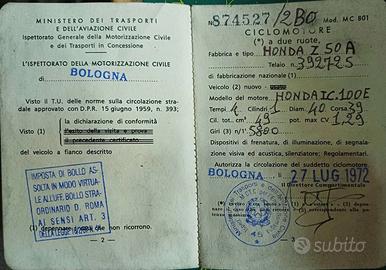 MINISTERO DEI TRASPORTI
E DELL'AVIAZIONE CIVILE
Ispettorato Generale della Motorizzazione Civile
e dei Trasporti in Concessione
L'ISPETTORATO DELLA MOTORIZZAZIONE CIVILE
di BOLOGNA
Visto il T.U. delle norme sulla circolazione stradale approvato con D.P.R. 15 giugno 1959, n. 393;
la dichiarazione di conformità
Visto (1) l'esito della visita e prova
il precedente certificato
del veicolo a fianco descritto
IMPOSTA DI BOLLO AS-
SOLTA IN MODO VIRTUA-
LE ALL'UFF. BOLLO STRA-
ORDINARIO D. ROMA
AI SENSI ART. 3
DELLA LEGGE
(1) depennare ciò che non ricorrono.
— 2 —
N. 874527/2BO Mod. MC 801
CICLOMOTORE
(*) a due ruote,
Fabbrica e tipo HONDA Z 50 A
Telaio n. 392725
di fabbricazione nazionale (1)
Veicolo (2) nuovo
Modello del motore HONDA IC.100E
Tempi 4 Cilindri 1 Diam. 40 Corsa 39
Cil. tot. cm³ 49 potenza max CV 1.29
Giri (3) n/1' 5800
Dispositivi di frenatura, di illuminazione, di segnalazione visiva ed acustica, silenziatore; Regolamentari.
Autorizza la circolazione del suddetto ciclomotore
BOLOGNA li 27 LUG 1972
Il Direttore Compartimentale
3
subito